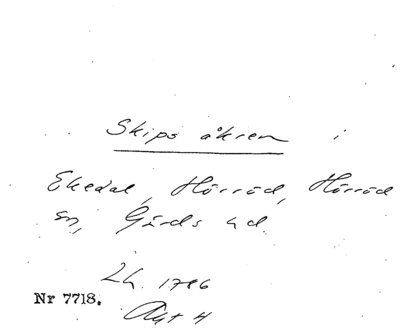 Skips åkren i
Ekedal, Hörröd, Hörröd
sn, Gärds hd.
Lh. 1786
Akt 4
Nr 7718.